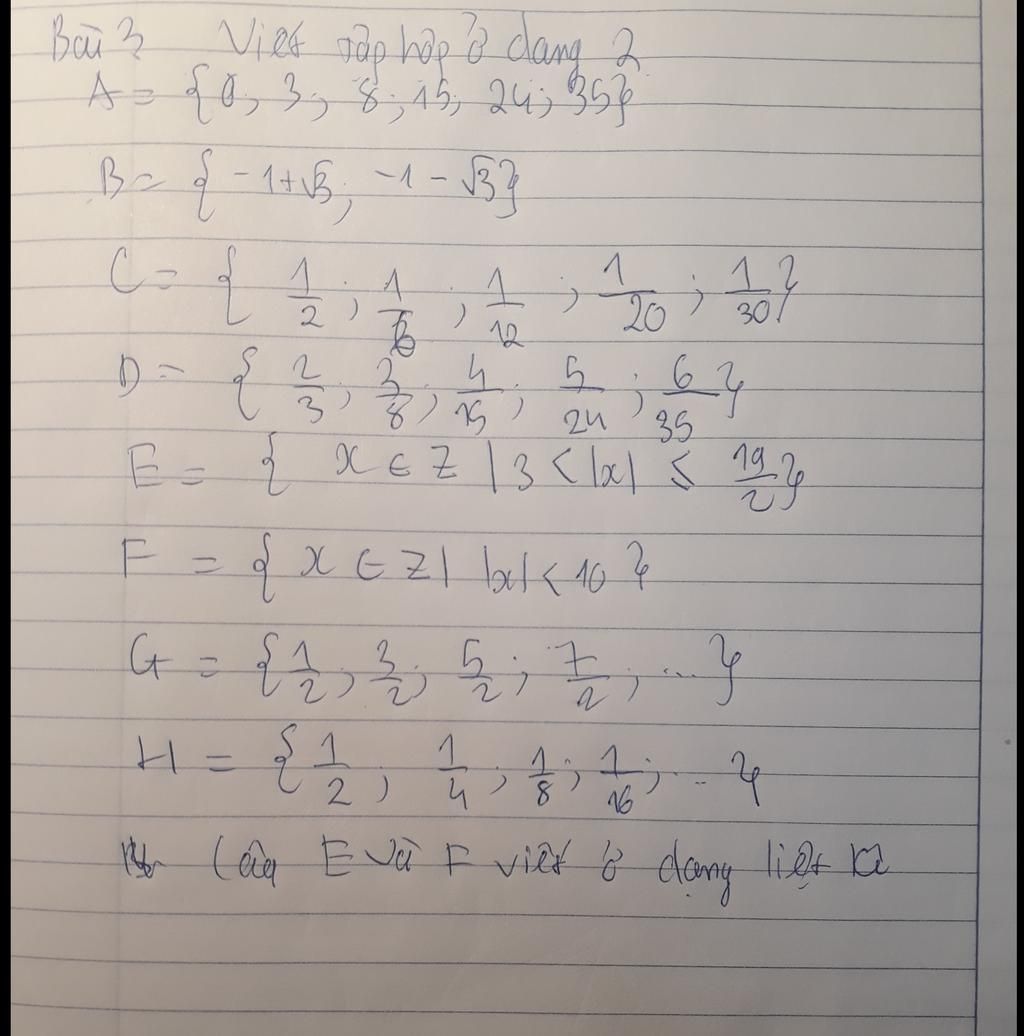 Bài 3 Viết tập hợp ở dạng 2
A = {0; 3; 8; 15; 24; 35}
B = {-1+√3; -1-√3}
C = {1/2; 1/6; 1/12; 1/20; 1/30}
D = {2/3; 3/8; 4/15; 5/24; 6/35}
E = {x ∈ Z | 3 < |x| ≤ 19/2}
F = {x ∈ Z | |x| < 10}
G = {1/2; 3/2; 5/2; 7/2; ...}
H = {1/2; 1/4; 1/8; 1/16; ...}
Câu E và F viết ở dạng liệt kê